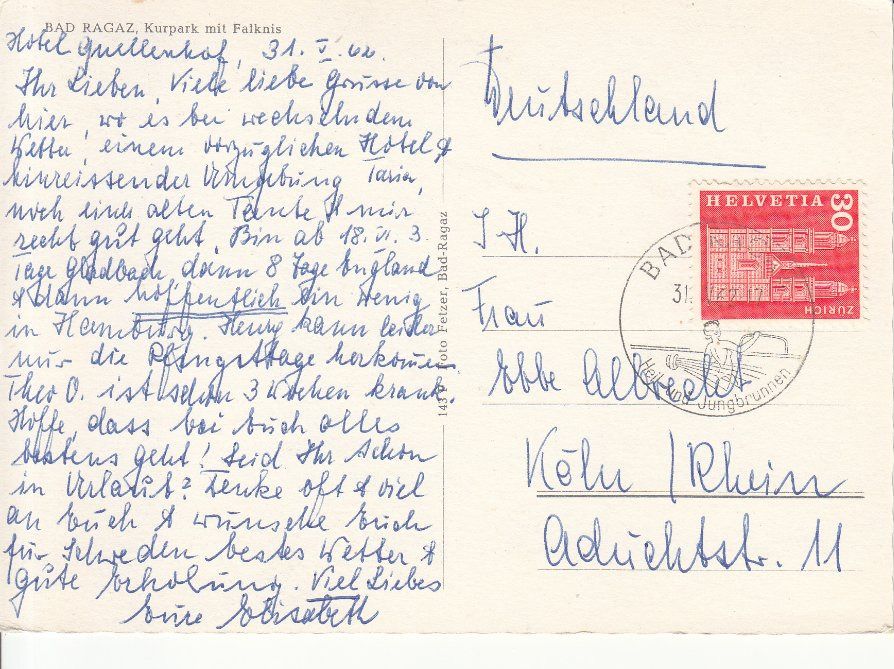 BAD RAGAZ, Kurpark mit Falknis
Hotel Quellenhof, 31. V. 62.
Ihr Lieben, Viele liebe Grüsse von
hier, wo es bei wechselndem
Wetter, einem vorzüglichen Hotel &
hinreissender Umgebung
noch einer alten Tante & mir
recht gut geht. Bin ab 18. VI. 3
Tage Gladbach, dann 8 Tage England
& dann hoffentlich ein wenig
in Hamburg. Henry kann leider
nur die Pfingsttage herkommen
Theo O. ist schon 3 Wochen krank.
Hoffe, dass bei Euch alles
bestens geht! Seid Ihr schon
in Urlaub? Denke oft & viel
an Euch & wünsche Euch
für Schweden bestes Wetter &
gute Erholung. Viel Liebes
Eure Elisabeth
143 Foto Fetzer, Bad-Ragaz
Deutschland
I. H.
Frau
Ebbe
Köln / Rhein
Aduchtstr. 11
HELVETIA
30
ZÜRICH
BAD
31.
Heil- und Jungbrunnen